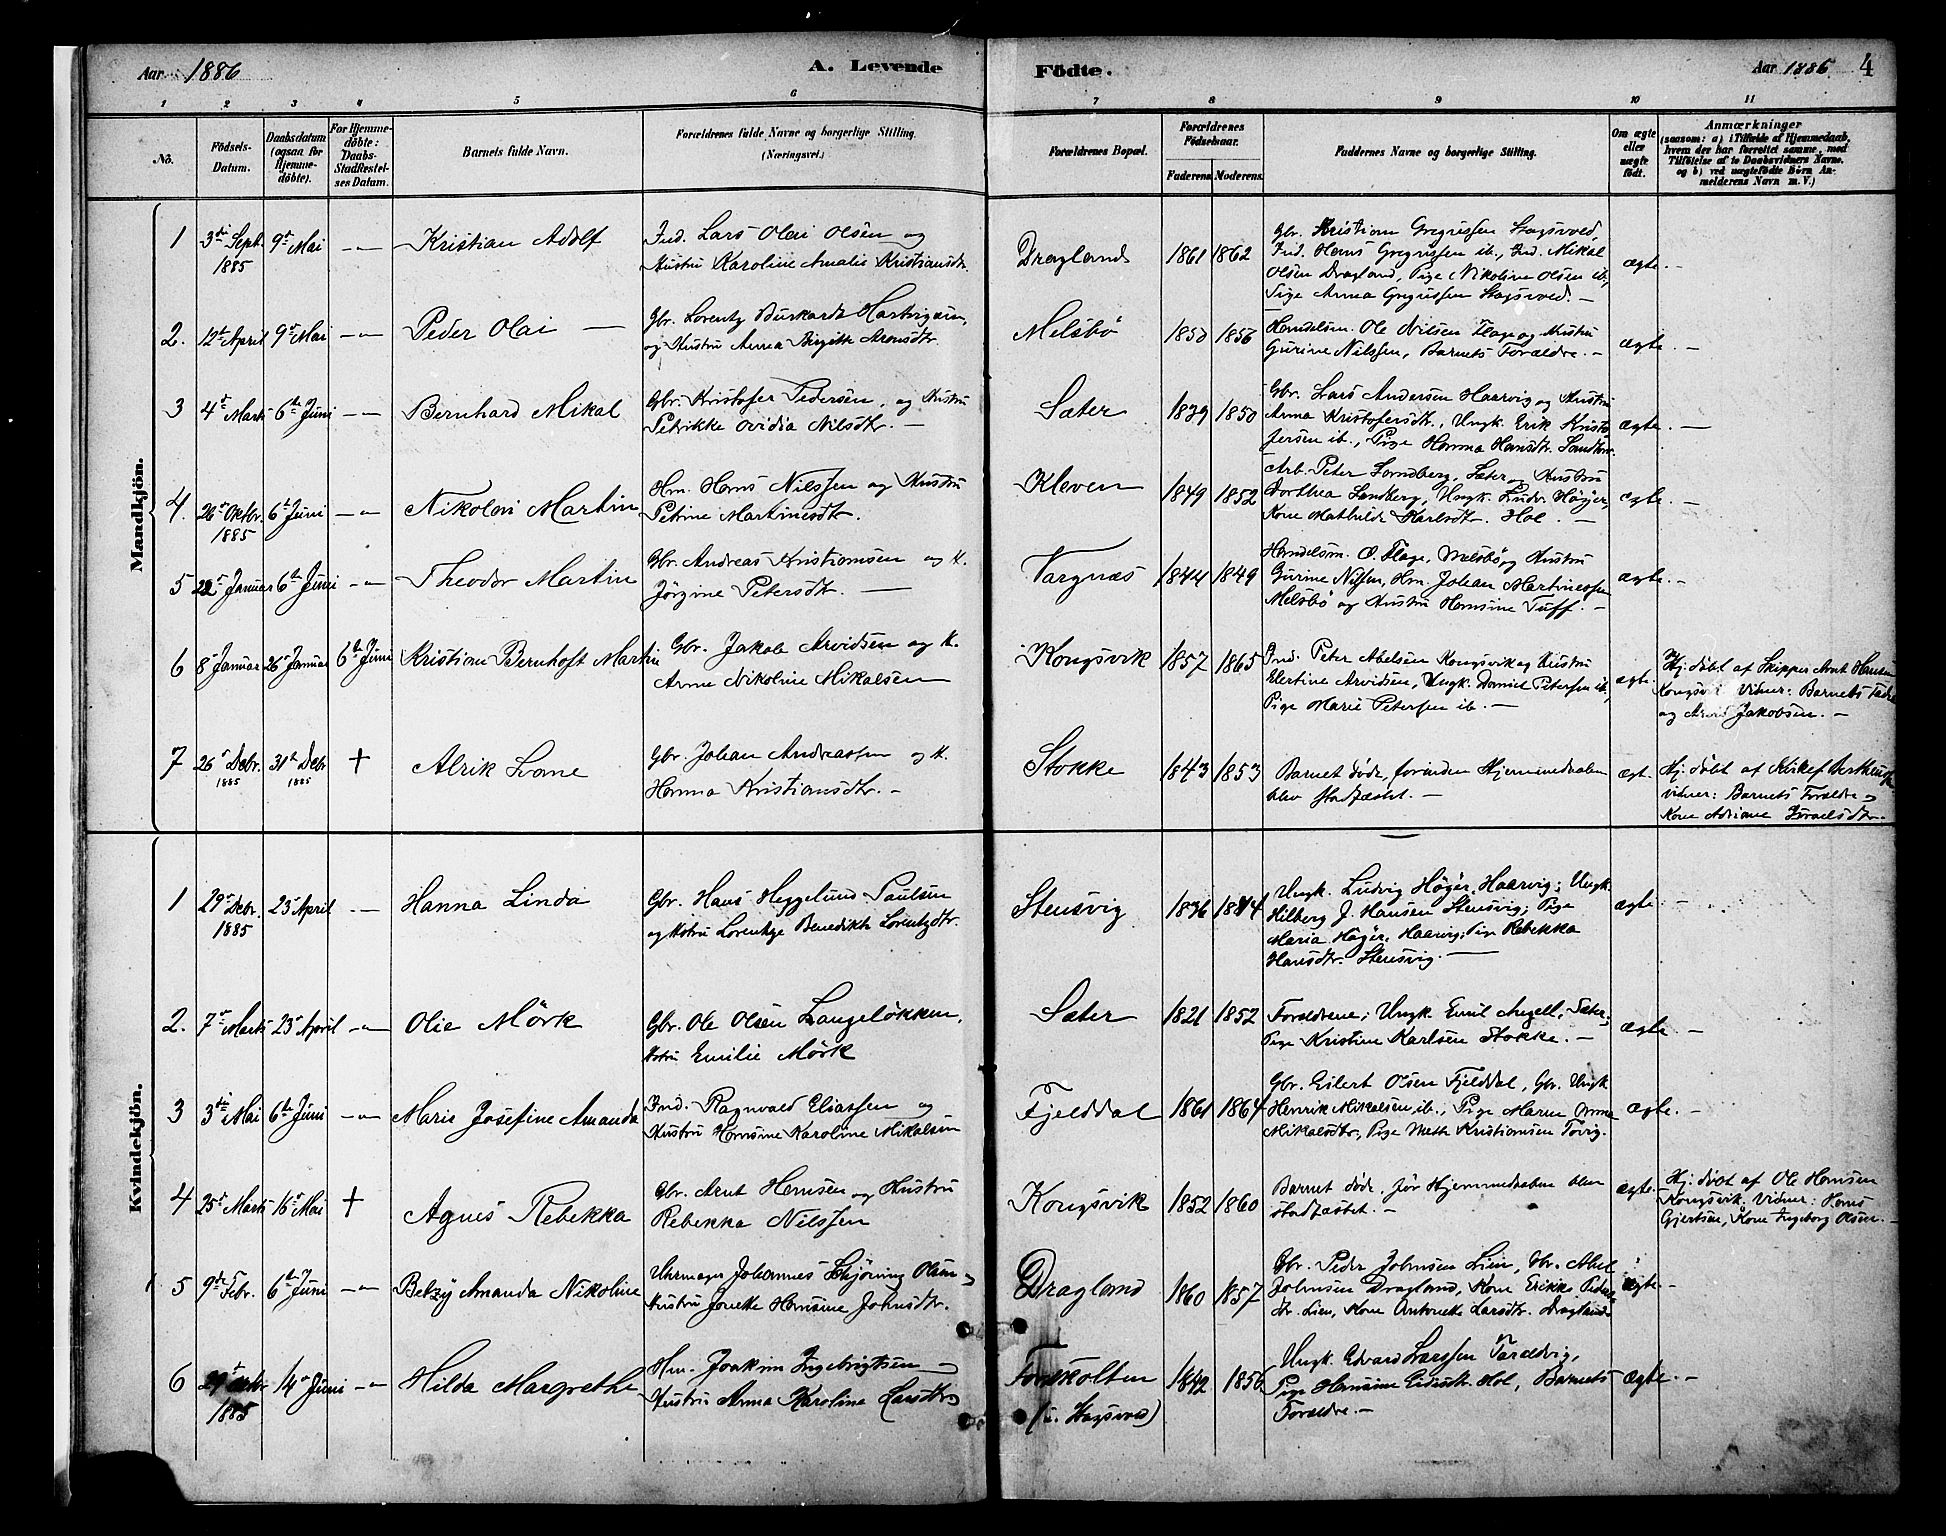 Aar 1886 A. Levende Födte. Aar 1886 4
1 2 3 4 5 6 7 8 9 10 11
No.
Födsels-
Datum.
Daabsdatum
(ogsaa for
Hjemme-
döbte).
For Hjemme-
döbte:
Daabs-
StadfæsteI-
ses Datum.
Barnets fulde Navn.
Forældrenes fulde Navne og borgerlige Stilling.
(Næringsvei.)
Forældrenes Bopæl.
Forældrenes
Födselsaar.
Faderens. Moderens.
Faddernes Navne og borgerlige Stilling.
Om ægte
eller
uægte
født.
Anmærkninger
(saasom: a) i Tilfælde af Hjemmedaab,
hvem der har forrettet samme, med
Tilföielse af to Daabsvidners Navne.
og b) ved uægtefödte Börn An-
melderens Navn m. V.)
Mandkjön.
1 3die Sept. 1885 9de Mai -"- Kristian Adolf
Ind. Lars Olai Olsen og
Hustru Karoline Amalie Kristiansdtr.
Dragland 1861 1862
Gbr. Kristian Gregussen Stagsvoed,
Ind. Hans Gregussen ib., Ind. Mikal
Olsen Dragland, Pige Nikoline Olsen ib,
Pige Anna Gregussen Stagsvoed. -
ægte. -
2. 12te April 9de Mai -"- Peder Olai -
Gbr. Lorentz Burkardt Hartvigsen,
og Hustru Anna Birgitte Aronsdtr.
Melsbö 1856
Handelsm. Ole Nilsen Flage og Hustru
Gurine Nilssen, Barnets Forældre. -
ægte. -
3 4de Marts 6te Juni -"- Bernhard Mikal
Gbr. Kristofer Pedersen, og Hustru
Petrikke Ovidia Nilsdtr. -
Sæter 1839 1850
Gbr. Lars Andersen Haarvig og Hustru
Anna Kristofersdtr., Ungk. Erik Kristo
fersen ib., Pige Hanna Hansdtr.
ægte. -
4. 26de Oktbr. 1885 6te Juni -"- Nikolai Martin
Hm. Hans Nilssen og Hustru
Petrine Martinesdtr.
Kleven 1849 1852
Arb. Peter Sandberg, Sæter og Hustru
Dorthea Sandberg, Ungk. Ludv. Höyer,
Kone Mathilde Karlsdtr. Hol. -
ægte -
5 22de Januar 6te Juni -"- Theodor Martin
Gbr. Andreas Kristiansen og H.
Jörgine Petersdtr. -
Vargnæs 1844 1849
Handelsm. O. Flage, Melsbö, og Hustru
Gurine Nilssen, Hm. Johan Martinessen
Melsbö og Hustru Hansine Tuff. -
ægte. -
6 8de Januar 26de Januar 6te Juni Kristian Bernhoft Martin
Gbr. Jakob Arvidsen og H.
Anne Nikoline Mikalsen
Kongsvik 1857 1865
Ind. Peter Abelsen Kongsvik og Hustru
Elertine Arvidsen, Ungk. Daniel Petersen ib,
Pige Marie Petersen ib. -
ægte.
Hj. döbt af Skipper Arnt Hansen
Kongsvik Vidner: Barnets Fader
og Arvid Jakobsen. -
7 26de Debr. 1885 31te Debr 1885 + Alrik Lorne
Gbr. Johan Andreassen og H.
Hanna Kristiansdtr. -
Stokke 1843 1853
Barnet döde, forinden Hjemmedaaben
blev stadfæstet. -
ægt. -
Hj. döbt af Berthensen
Vidner: Barnets Forældre og
Kone Adriane Israelsdtr.
Kvindekjön.
1 29de Debr. 1885 23de April -"- Hanna Linda
Gbr. Hans Heggelund Paulsen
og Hstru Lorentze Benedikte Lorentzdtr.
Stensvig 1836 1844
Ungk. Ludvig Höyer, Haarvig; Ungk.
Hilberg J. Hansen Stensvig; Pige
Maria Höyer, Haarvig; Pige Rebekka
Hansdtr. Stensvig. -
ægte. -
2. 7de Marts 23de April -"- Olie Mörk
Gbr. Ole Olsen Langelökken,
Hstru Emilie Mörk
Sæter 1821 1852
Forældrene; Ungk Emil Angell, Sæter;
Pige Kristine Karlsen Stokke. -
ægte. -
3 3die Mai 6te Juni -"- Marie Josefine Amanda
Ind. Ragnvald Eliassen og
Hustru Hansine Karoline Mikalsen
Fjelddal 1861 1864
Gbr. Eilert Olsen Fjelddal, Gbr. Ungk
Henrik Mikalsen ib., Pige Maren Anna
Mikalsdtr, Pige Mette Kristiansen Tovig.
ægte. -
4 25de Marts 16de Mai + Agnes Rebekka
Gbr. Arnt Hansen og Hustru
Rebekka Nilssen
Kongsvik 1852 1860
Barnet döde, för Hjemmedaaben blev
stadfæstet. -
ægte. -
Hj. döbt af Ole Hansen
Kongsvik, Vidner: Hans
Gjertsen, Kone Ingeborg Olsen. -
5 9de Febr. 6te Juni -"- Betzy Amanda Nikoline
Uhrmager Johannes Schjöning Olsen og
Hustru Jonette Hansine Johnsdtr.
Dragland 1860 1857
Gbr. Peder Johnsen Lien, Gbr. Abel
Johnsen Dragland, Kone Erikke Peders
dtr. Lien, Kone Antonette Larsdtr. Dragland
ægte -
6 29de Oktbr 1885 14de Juni -"- Hilda Margrethe
Hm. Joakim Ingebrigtsen og
Hustru Anna Karolina Larsdtr
Forskolten
(i. Stagsvoed) 1842 1856
Ungk. Edvard Larssen Taraldvig,
Pige Hansine Eidisdtr. Hol, Barnets
Forældre. -
ægte. -